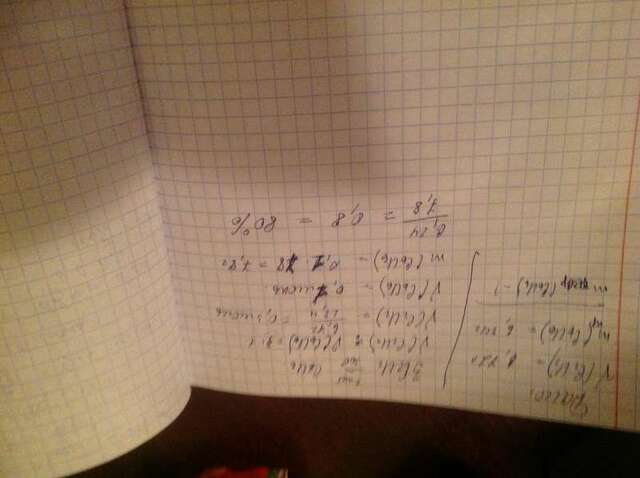 Дано:
V(C₂H₂) = 6,72л
m пр(C₆H₆) = 6,24г
3C₂H₂ C₆H₆
ν(C₂H₂) : ν(C₆H₆) = 3:1
ν(C₂H₂) = 6,72/22,4 = 0,3 моль
ν(C₆H₆) = 0,1 моль
m(C₆H₆) = 0,1 78 = 7,8г
6,24/7,8 = 0,8 = 80%